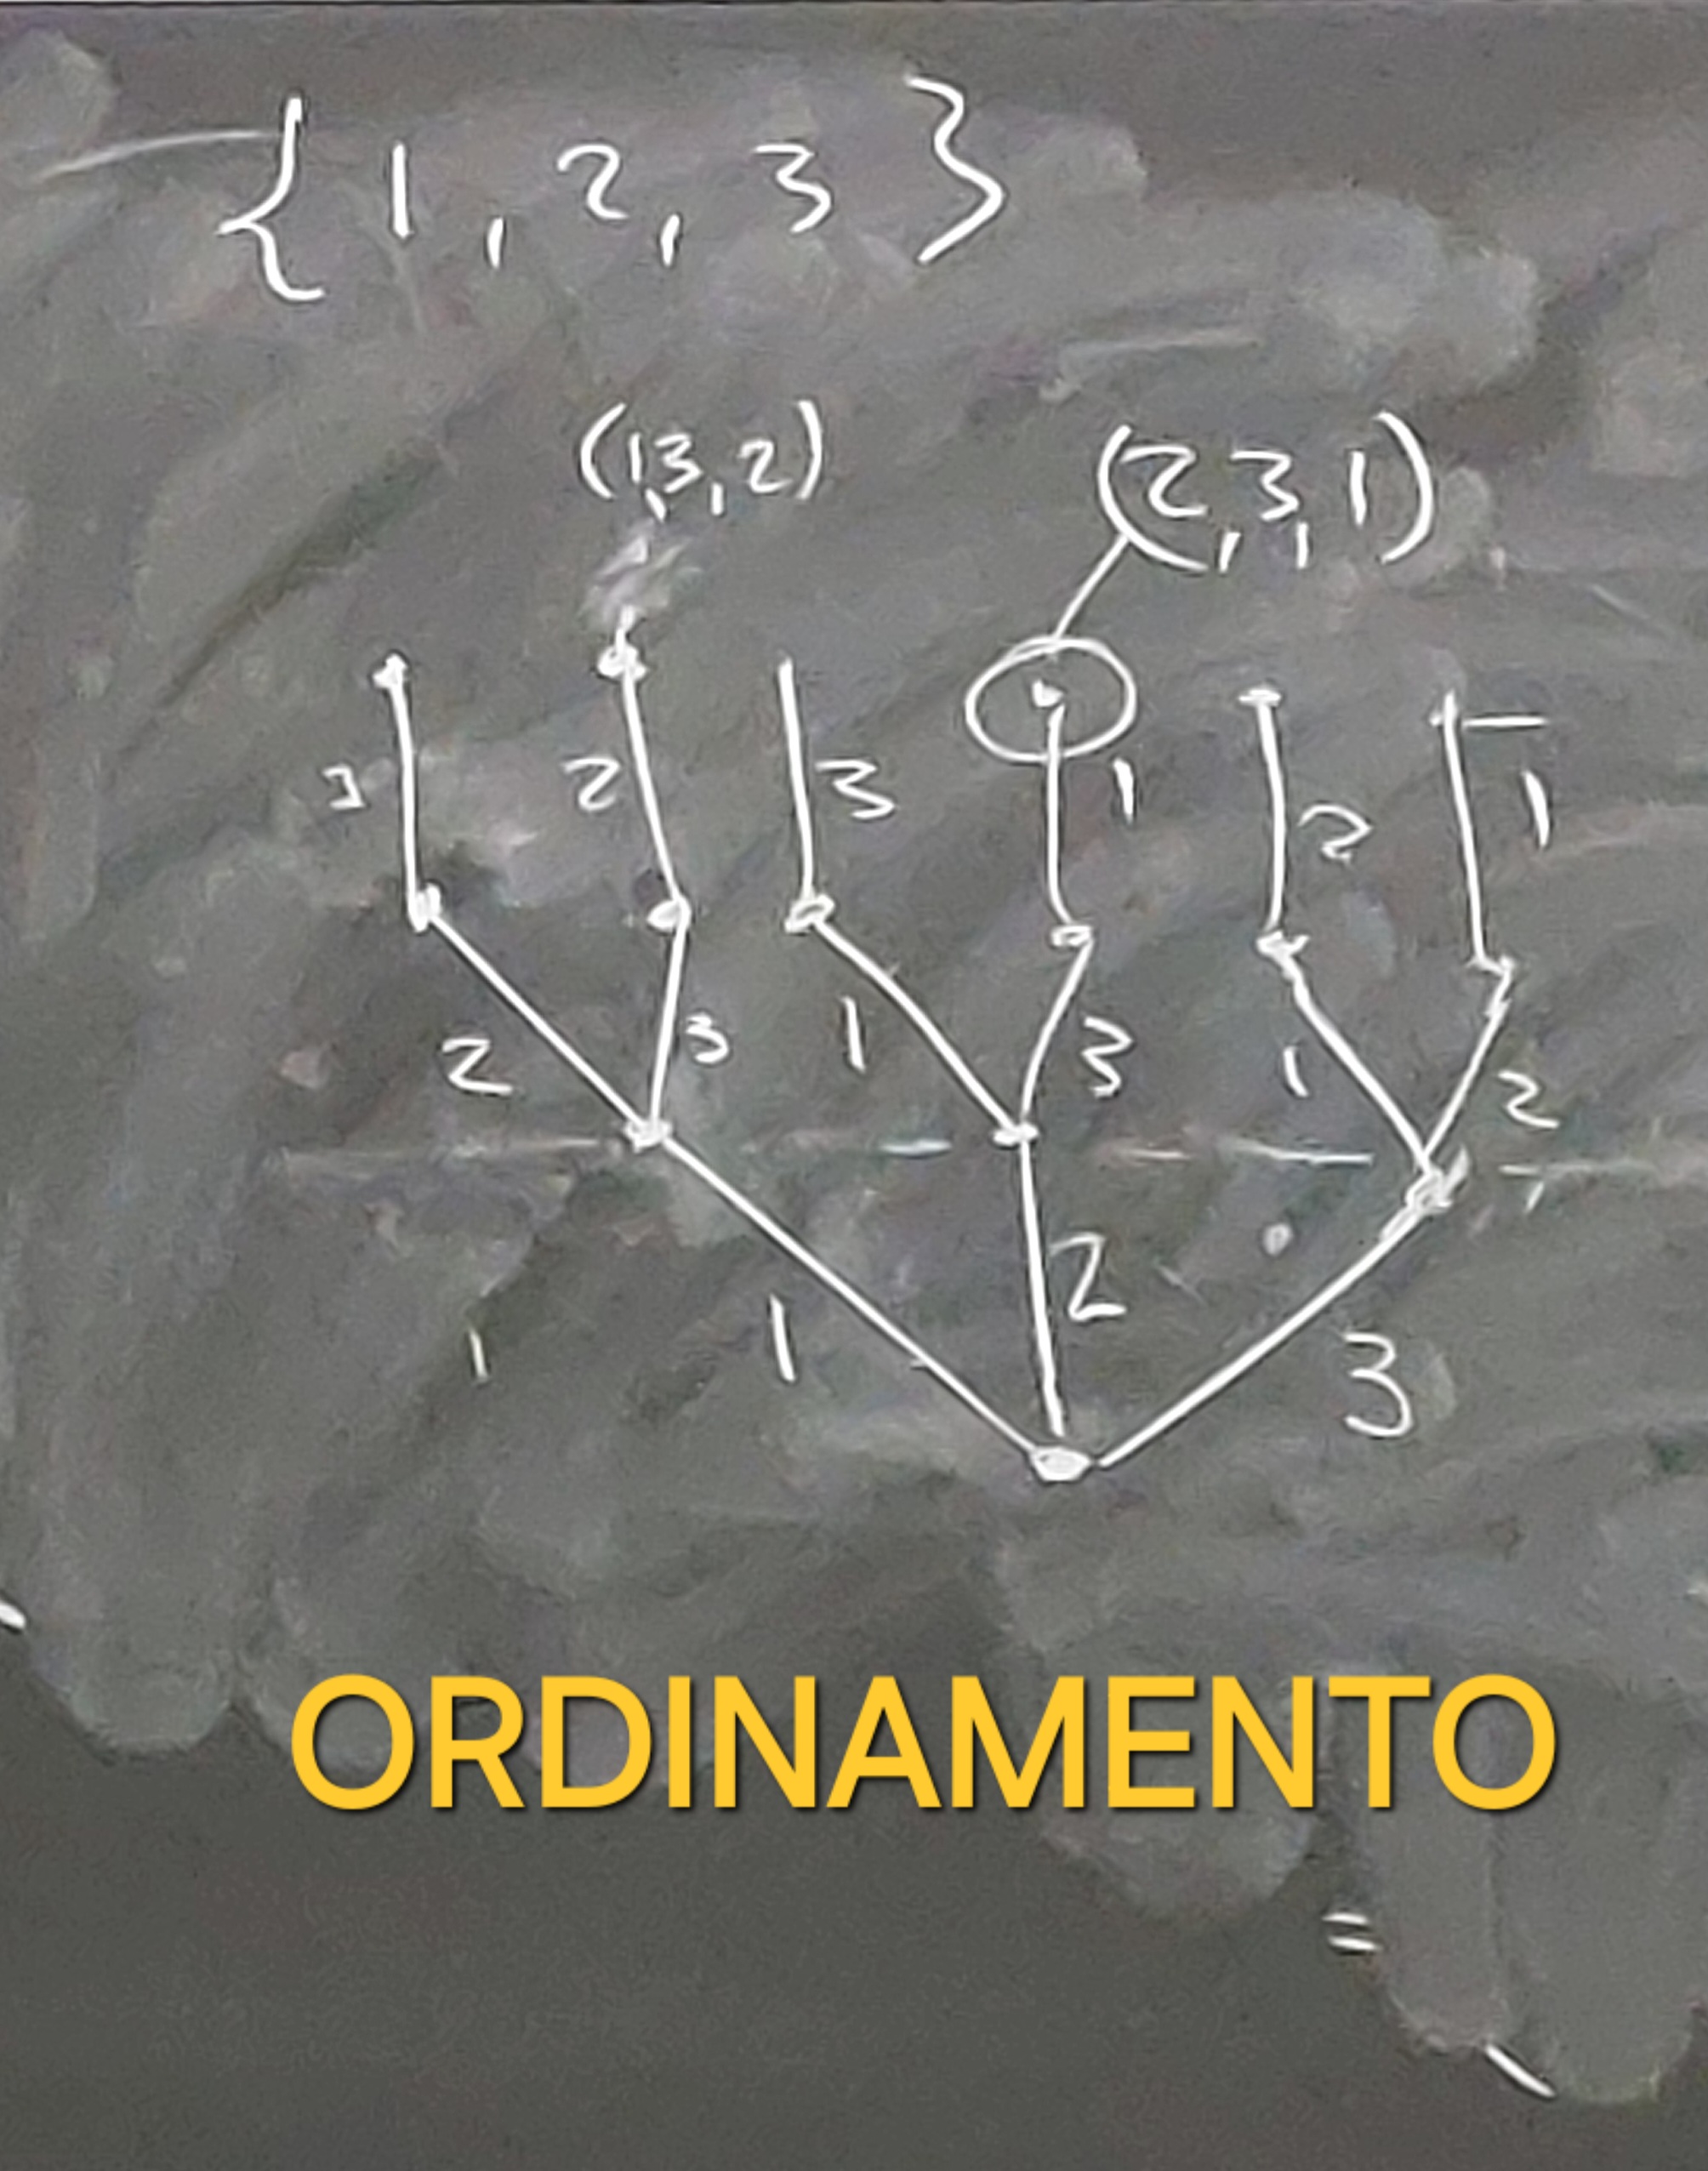 {1, 2, 3}
(1,3,2) (2,3,1)
3 2 3 1 2 1
2 3 1 3 1 2
1 1 2 3
ORDINAMENTO
=